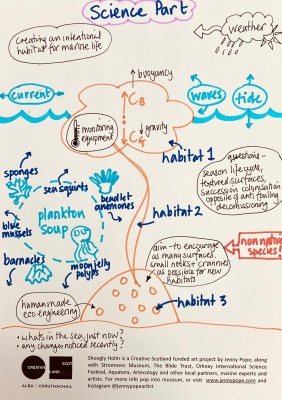 Science Part
Creating an intentional
habitat for marine life
weather
↑ buoyancy
current
CB
waves
tide
monitoring
equipment
↓ gravity
CG
habitat 1
questions -
season lifecycle,
textured surfaces,
succession colonisation
opposite of anti fouling
decomissioning
sponges
sea squirts
beadlet
anemones
habitat 2
plankton
soup
blue
mussels
non native
species!
barnacles
moon jelly
polyps
aim - to encourage
as many surfaces,
small nooks + crannies
as possible for new
habitats
human made
eco engineering
habitat 3
• whats in the sea just now?
• any changes noticed recently?
CREATIVE SCOTLAND
ALBA | CHRUTHACHAIL
Shoogly Holm is a Creative Scotland funded art project by Jenny Pope, along
with Stromness Museum, The Blide Trust, Orkney International Science
Festival, Aquatera, Artecology and other local partners, marine experts and
artists. For more info pop into museum, or visit www.jennypope.com and
Instagram @jennypopeartist